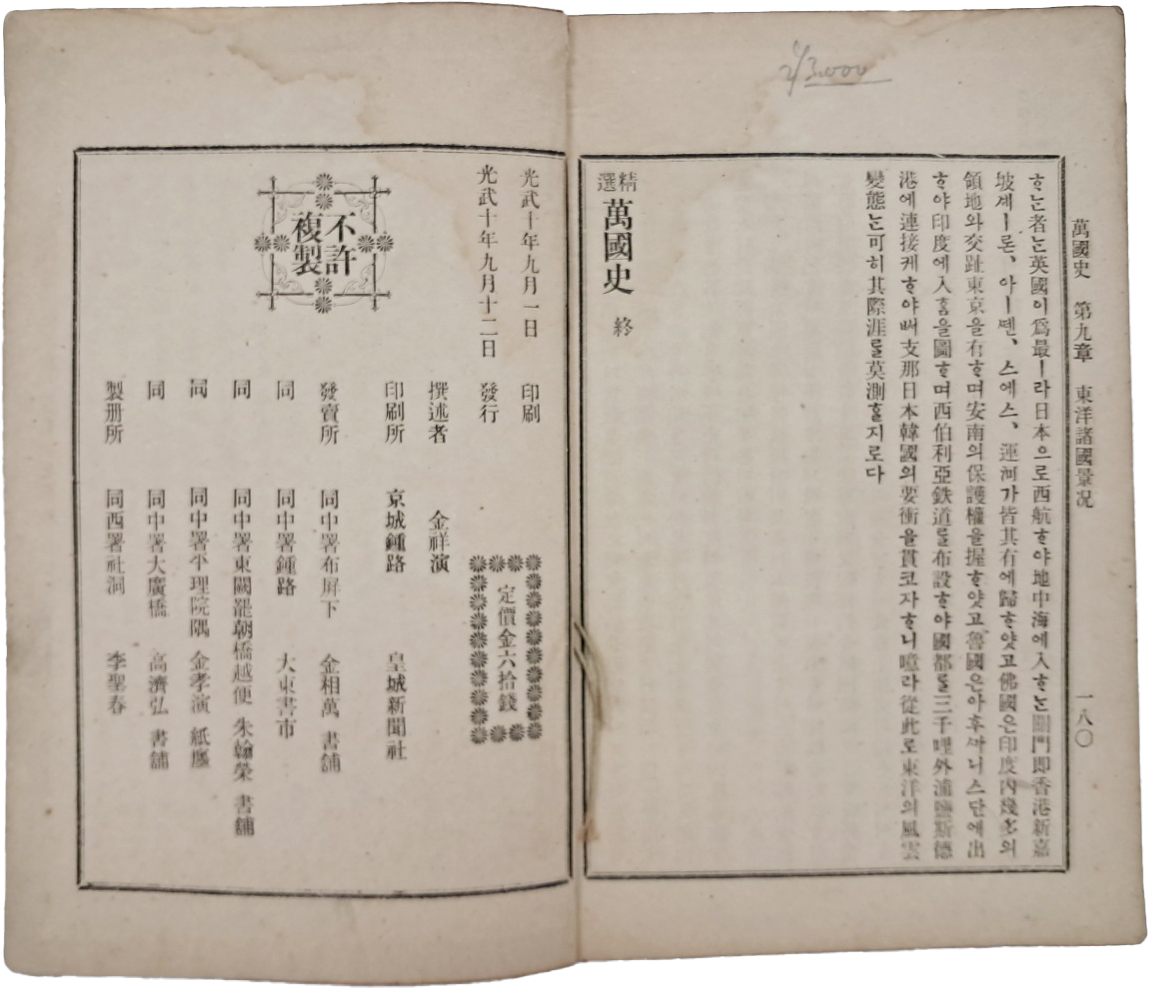 萬國史 第九章 東洋諸國景况 一八〇
ᄒᆞᄂᆞᆫ者ᄂᆞᆫ英國이爲最ㅣ라日本으로西航ᄒᆞ야地中海에入ᄒᆞᄂᆞᆫ關門即香港新嘉
坡셰ㅣ론、아ㅣ뎬、스에스、運河가皆其有에歸ᄒᆞ얏고佛國은印度內幾多의
領地와交趾東京을有ᄒᆞ며安南의保護權을握ᄒᆞ얏고魯國은아후ᄭᅡ니스단에出
ᄒᆞ야印度에入홈을圖ᄒᆞ며西伯利亞鉄道ᄅᆞᆯ布設ᄒᆞ야國都ᄅᆞᆯ三千哩外浦鹽斯德
港에連接케ᄒᆞ야ᄡᅥ支那日本韓國의要衝을貫코자ᄒᆞ니噫라從此로東洋의風雲
變態ᄂᆞᆫ可히其際涯ᄅᆞᆯ莫測ᄒᆞᆯ지로다
精選 萬國史 終
2/3.000
光武十年九月一日 印刷
光武十年九月十二日 發行
定價金六拾錢
撰述者 金祥演
印刷所 京城鍾路 皇城新聞社
發賣所 同中署布屏下 金相萬 書舖
同 同中署鍾路 大東書市
同 同中署東闕罷朝橋越便 朱翰榮 書舖
同 同中署平理院隅 金孝演 紙廛
同 同中署大廣橋 高濟弘 書舖
製册所 同西署社洞 李聖春
不許
複製